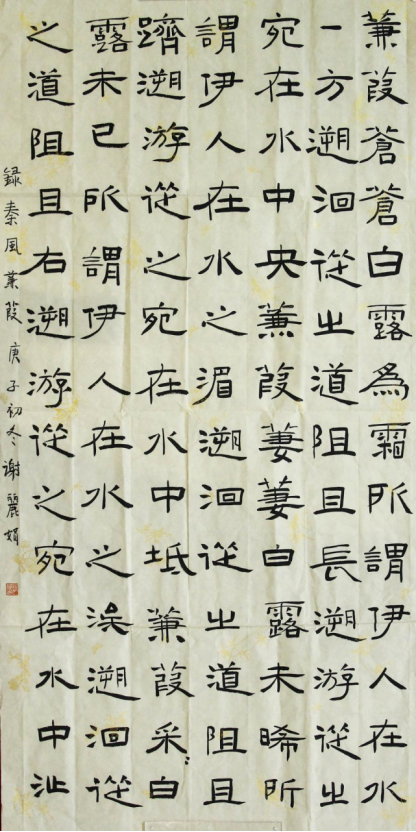 蒹葭蒼蒼白露爲霜所謂伊人在水
一方遡洄從之道阻且長遡游從之
宛在水中央蒹葭萋萋白露未晞所
謂伊人在水之湄遡洄從之道阻且
躋遡游從之宛在水中坻蒹葭采〻白
露未已所謂伊人在水之涘遡洄從
之道阻且右遡游從之宛在水中沚
録秦風蒹葭庚子初冬謝麗娟